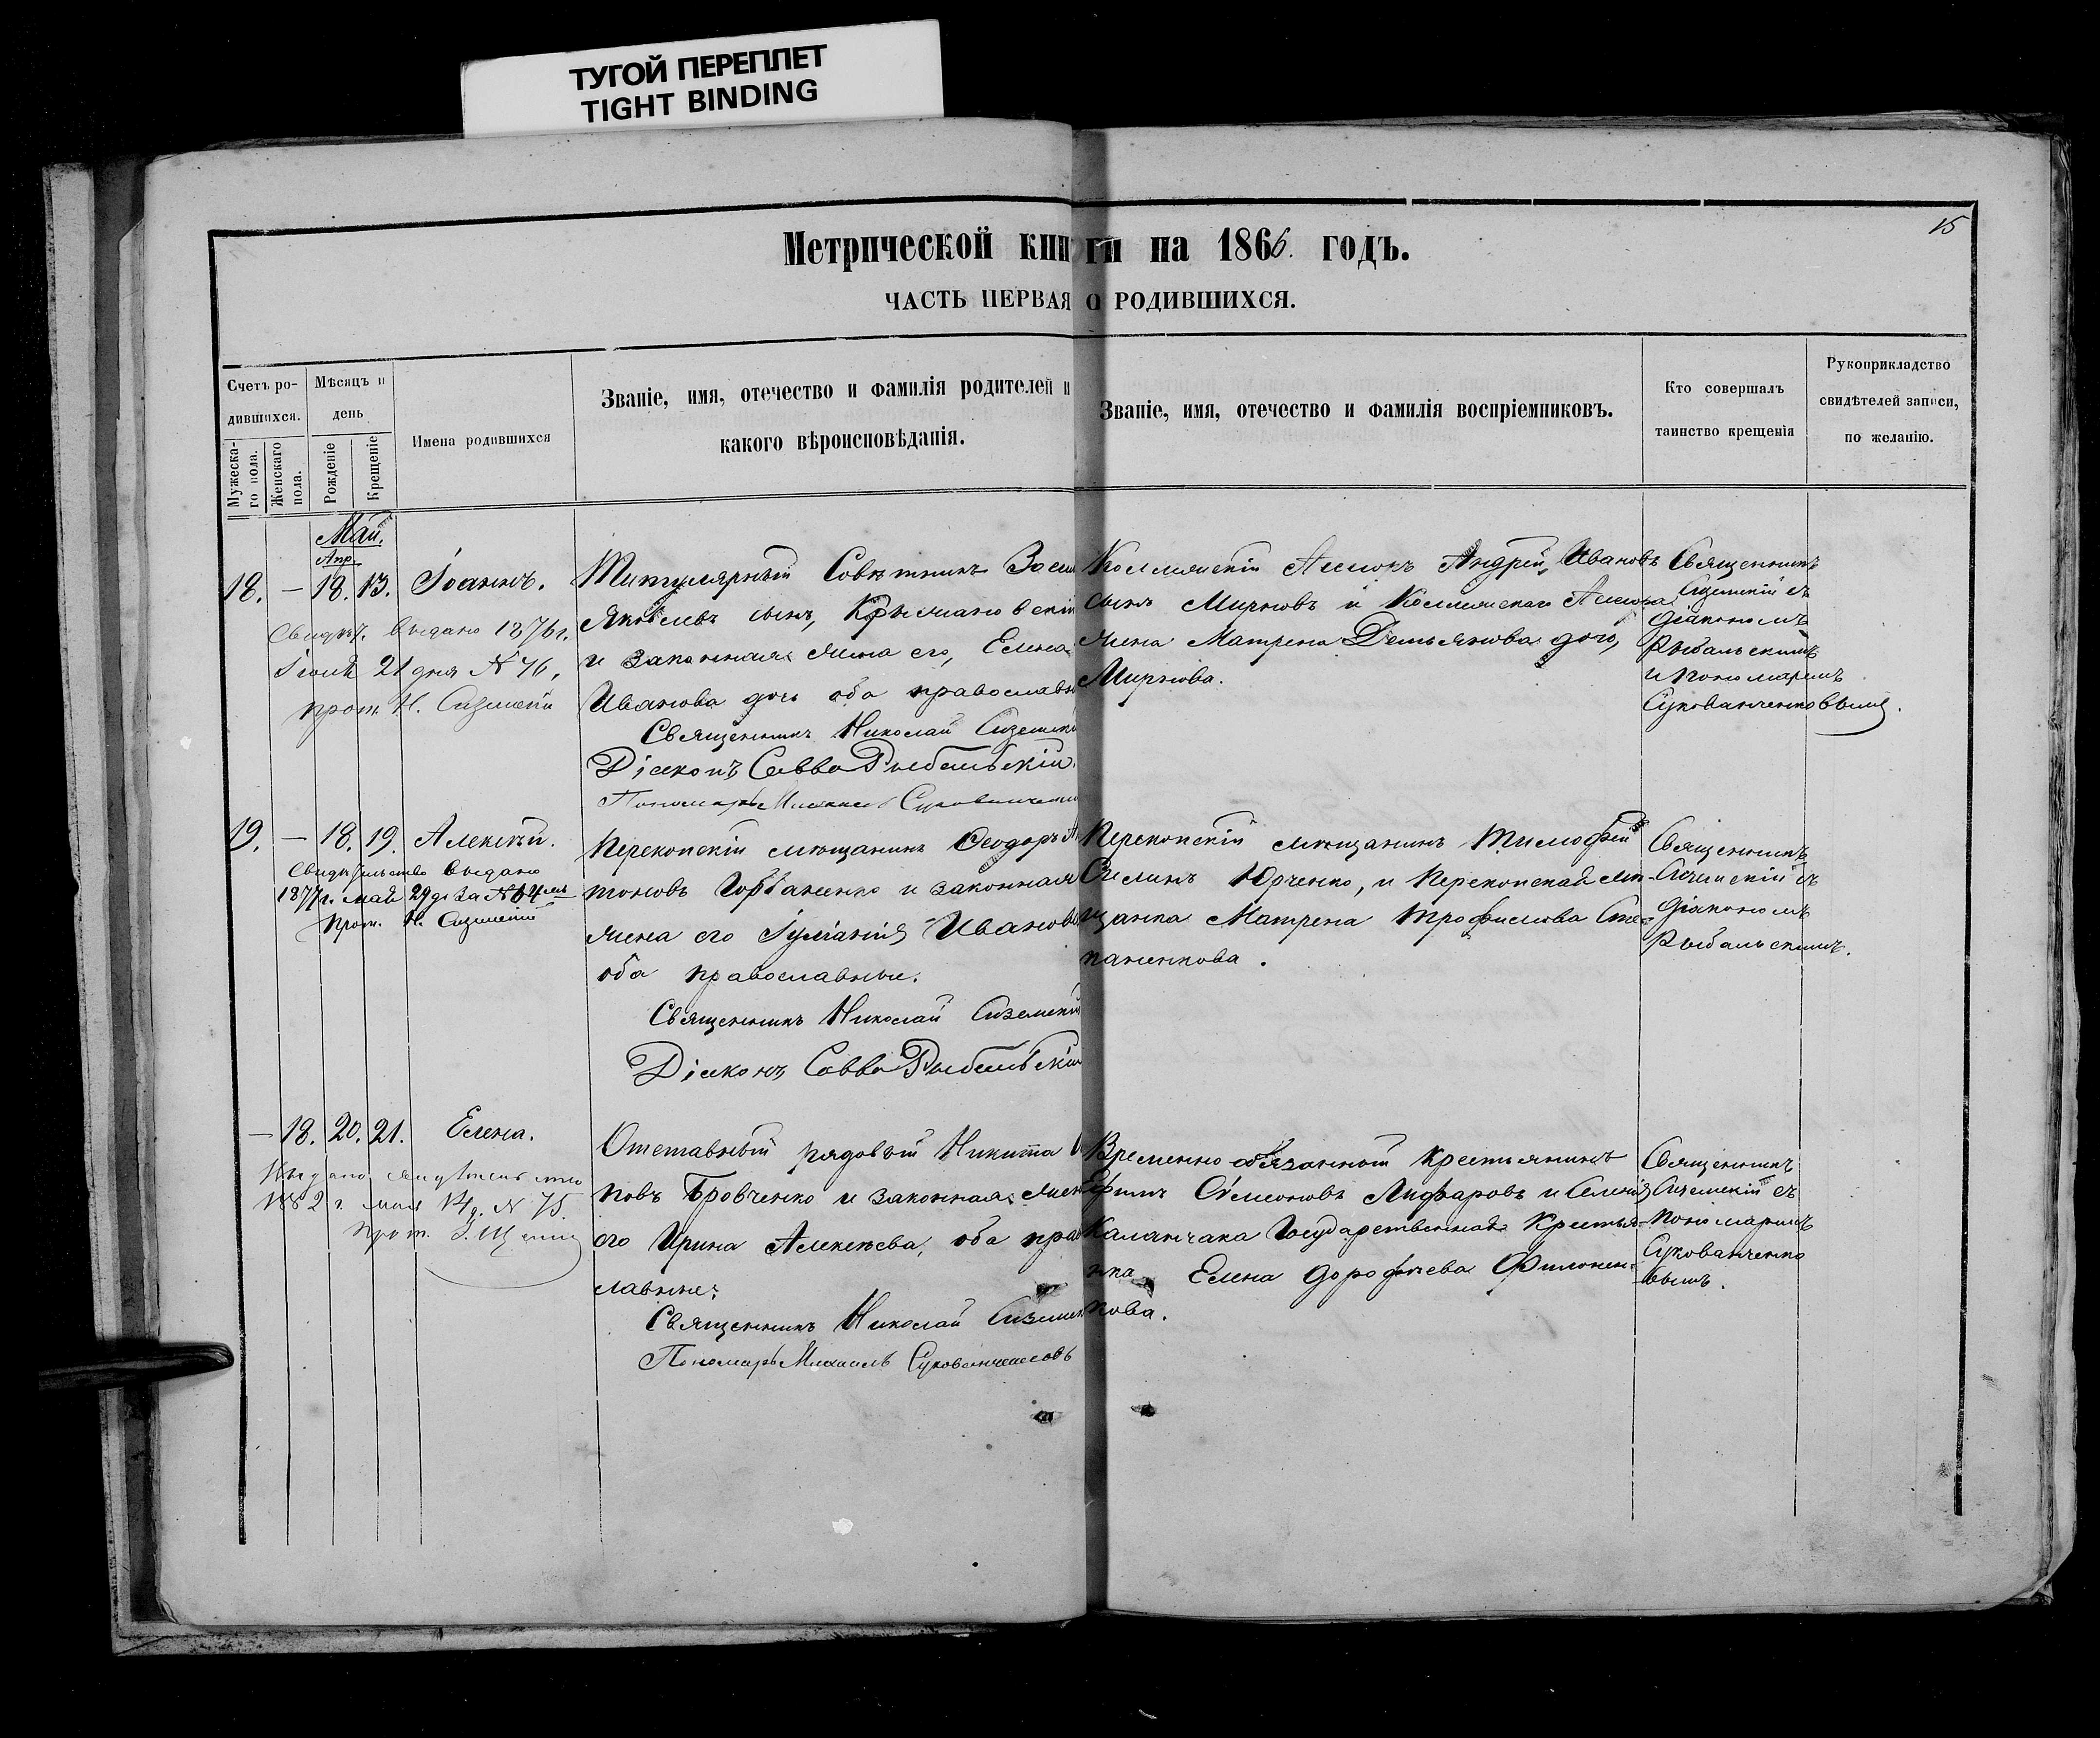 ТУГОЙ ПЕРЕПЛЕТ
TIGHT BINDING
15
Метрической книги на 1866. годъ.
ЧАСТЬ ПЕРВАЯ О РОДИВШИХСЯ.
Счетъ ро-
дившихся.
Мужеска-
го пола.
Женскаго
пола.
Мѣсяцъ и
день
Рожденіе
Крещеніе
Имена родившихся
Званіе, имя, отечество и фамилія родителей и
какого вѣроисповѣданія.
Званіе, имя, отечество и фамилія воспріемниковъ.
Кто совершалъ
таинство крещенія
Рукоприкладство
свидѣтелей записи,
по желанію.
Май.
Апр.
18. — 18. 13. Іоаннъ.
Свидѣт. выдано 1876 г.
Іюля 21 дня N 76,
прот. Н.
Титулярный Совѣтникъ
Яковлевъ сынъ,
и законная жена его, Елена
Иванова дочь оба православн
Священникъ Николай
Діаконъ Савва Рыбальскій.
Пономарь Михаилъ
Коллежскій Ассесоръ Андрей Ивановъ
сынъ Мирновъ и Коллежскаго Ассесора
жена Матрена Демьянова дочь,
Мирнова.
Священникъ
съ
діакономъ
Рыбальскимъ
и пономаремъ
Сукованченковымъ.
19. — 18. 19. Алексѣй.
Свидѣтельство выдано
1877 г. мая 29 д. за N 64
Прот. Н.
Перекопскій мѣщанинъ Ѳеодоръ Ан
тоновъ Горбаненко и законная
жена его Іуліанія Иванова
оба православные.
Священникъ Николай
Діаконъ Савва Рыбальскій
Перекопскій мѣщанинъ Тимофей
Юрченко, и Перекопская мѣ-
щанка Матрена Трофимова Сте-
паненкова.
Священникъ
съ
діакономъ
Рыбальскимъ.
— 18. 20. 21. Елена.
Выдано свидѣтельство
1882 г. мая 14 д. N 75.
Прот.
Отставный рядовый Никита
повъ Бровченко и законная жена
его Ирина Алексѣева, оба право
лавные.
Священникъ Николай
Пономарь Михаилъ Сукованченковъ
Временно обязанный крестьянинъ
Семеновъ и Селенія
Каланчака Государственная Крестья-
нка Елена Дорофѣева Филонен-
кова.
Священникъ
съ
пономаремъ
Сукованченко
вымъ.